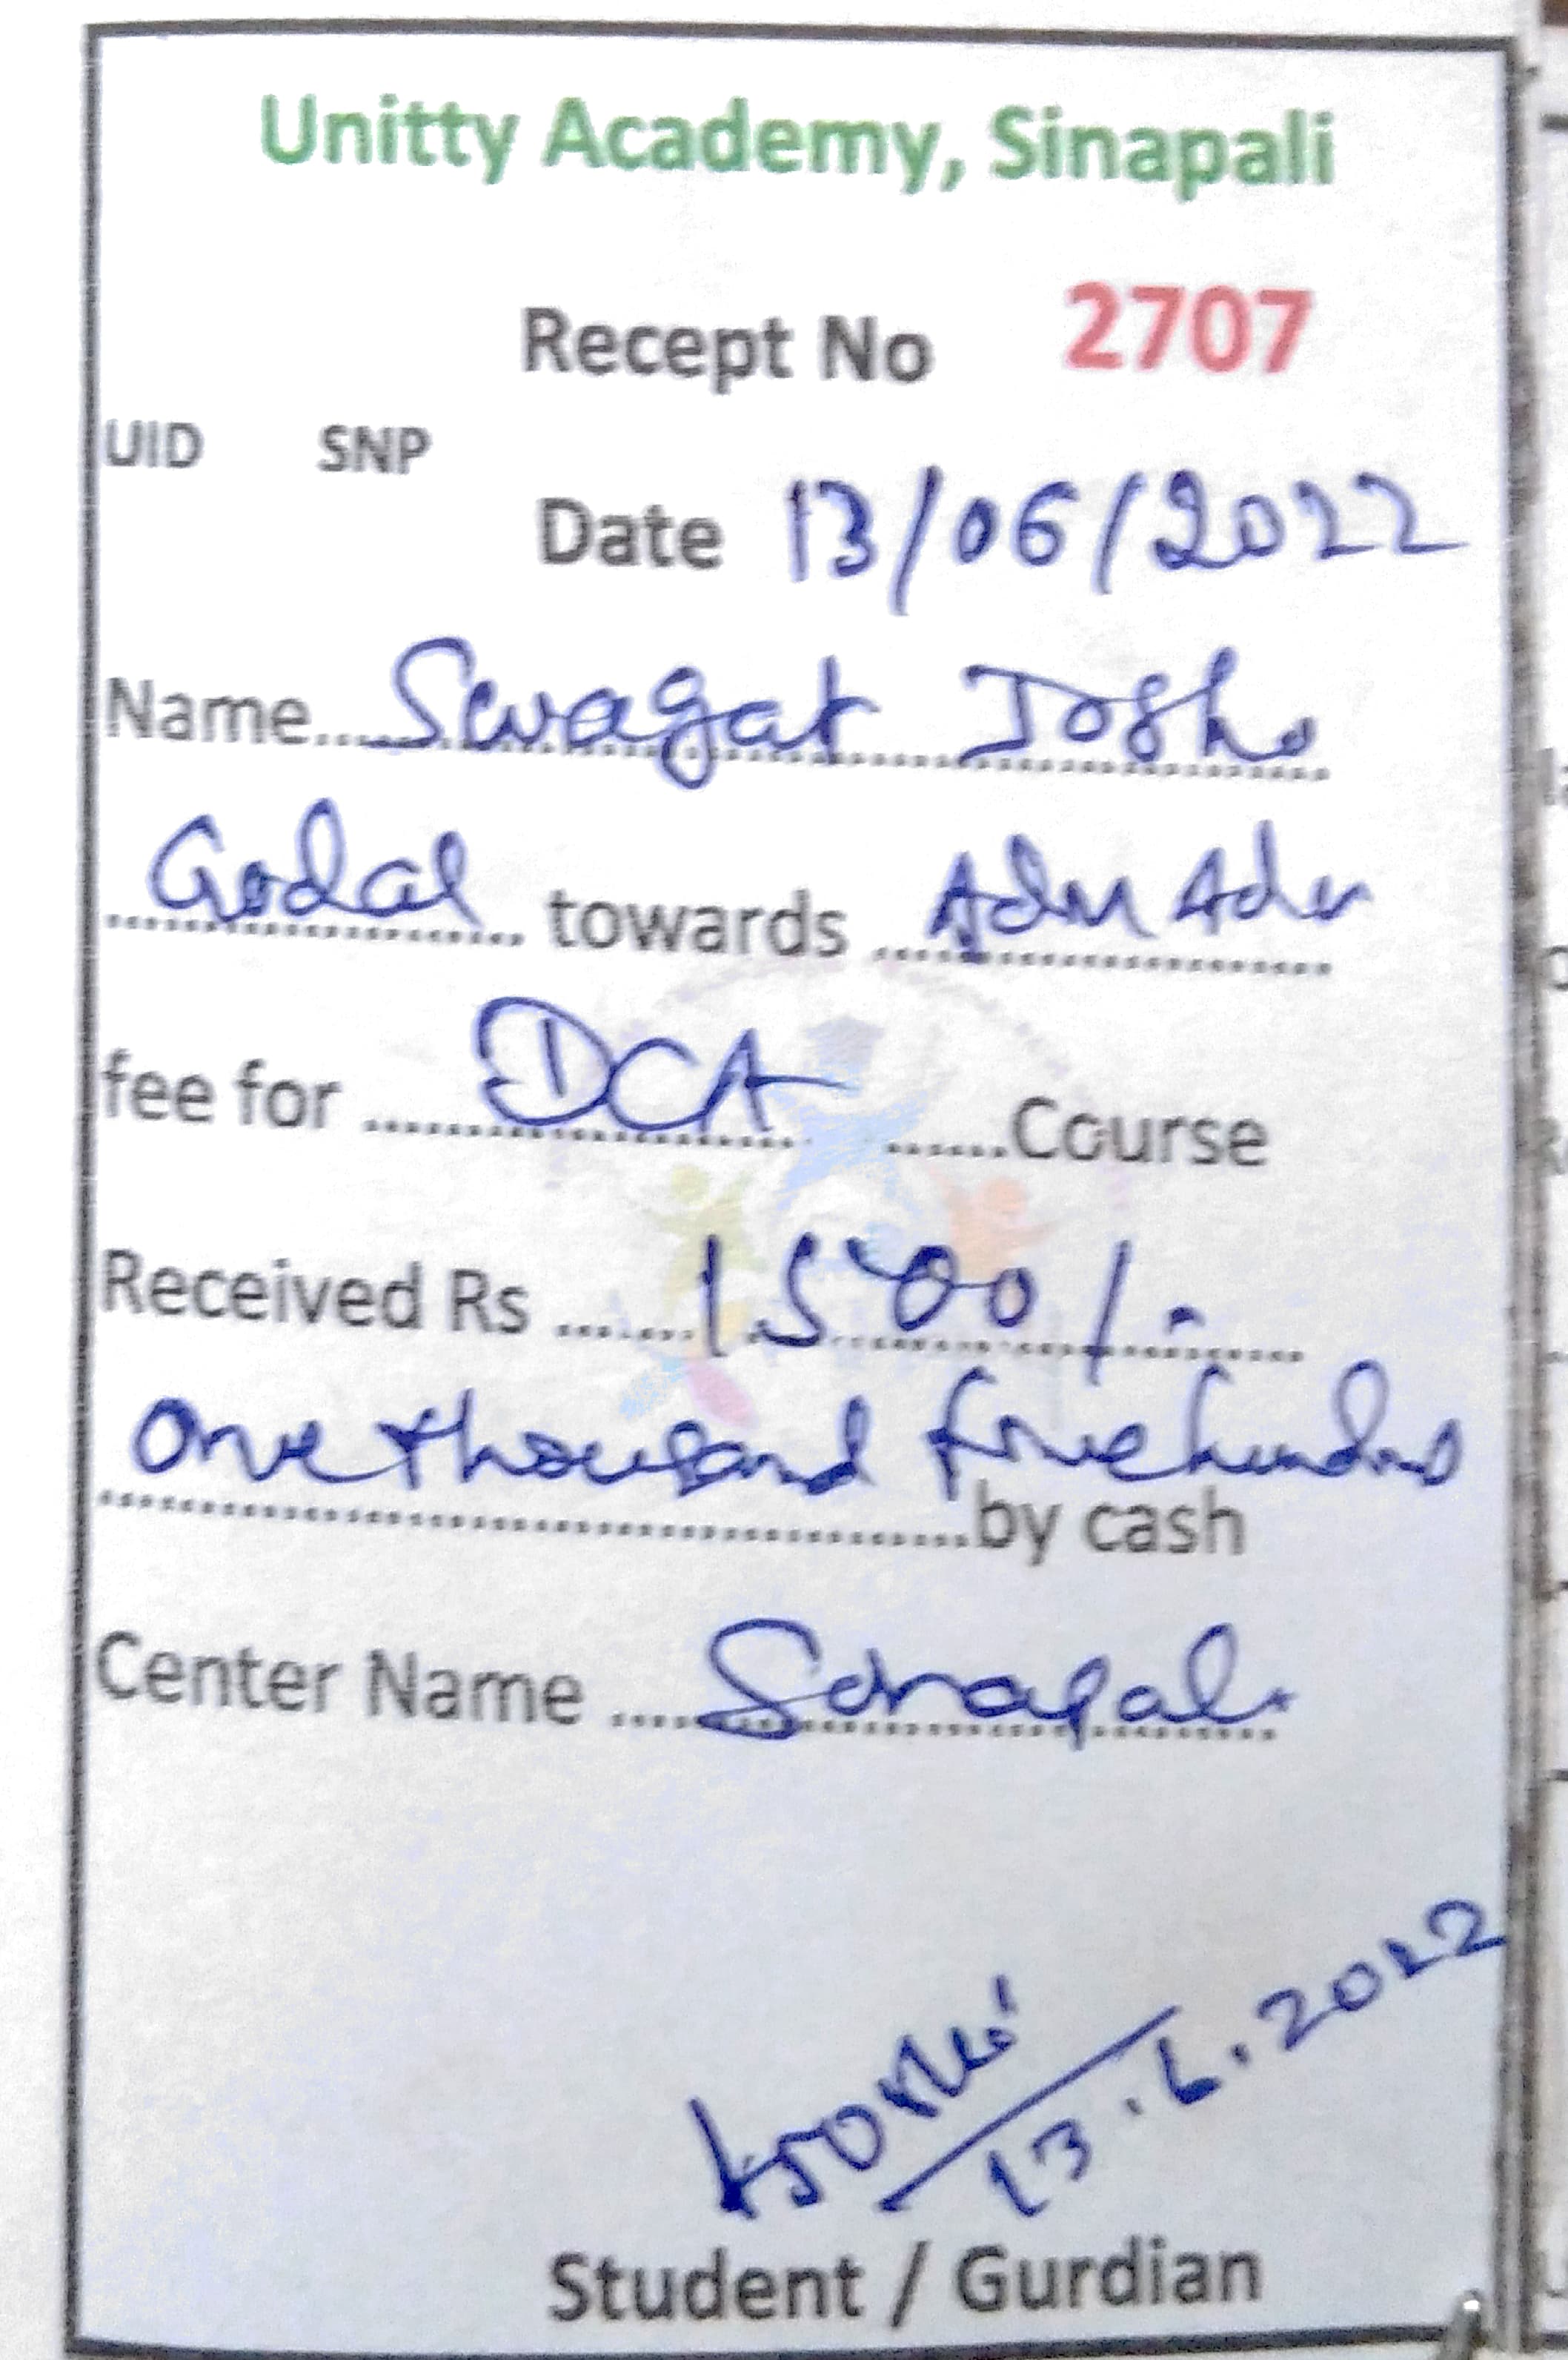 Unitty Academy, Sinapali
Recept No 2707
UID SNP
Date 13/06/2022
Name Swagat Joshi
Godal towards Adm Adm
fee for DCA Course
Received Rs 1500/-
One thousand five hundred
by cash
Center Name Sinapali
13.6.2022
Student / Gurdian